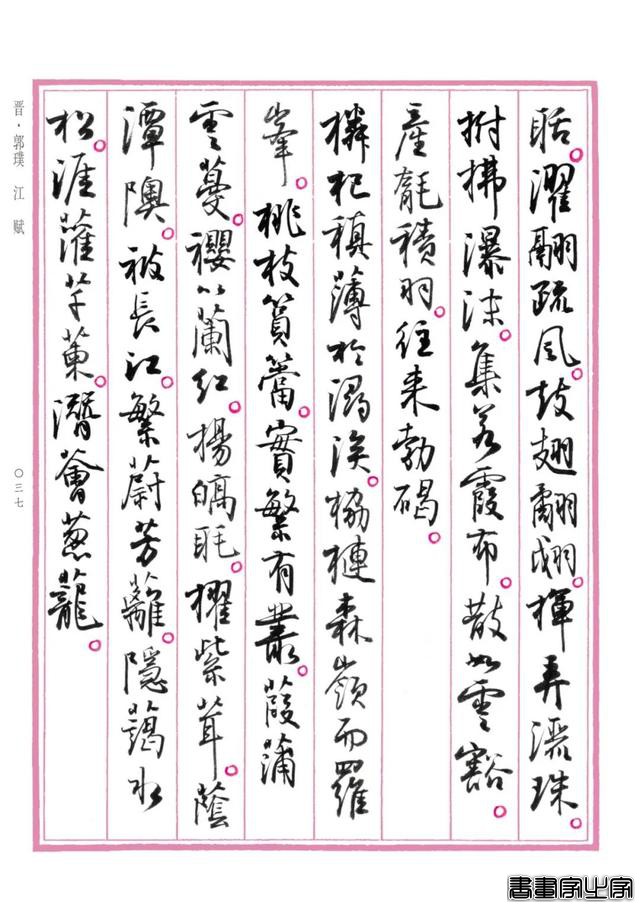 聒。濯翮疏風。鼓翅翻翃。揮弄灑珠。
拊拂瀑沫。集若霞布。散如雲豁。
產毻積羽。往來勃碣。
橉杞稹薄於潯涘。栛槤森嶺而羅
峯。桃枝篔簹。實繁有叢。葭蒲
雲蔓。櫻以蘭紅。揚皜毦。擢紫茸。蔭
潭隩。被長江。繁蔚芳蘺。隱藹水
松。涯灌芊萰。潛薈蔥蘢。
晋·郭璞 江賦
〇三七